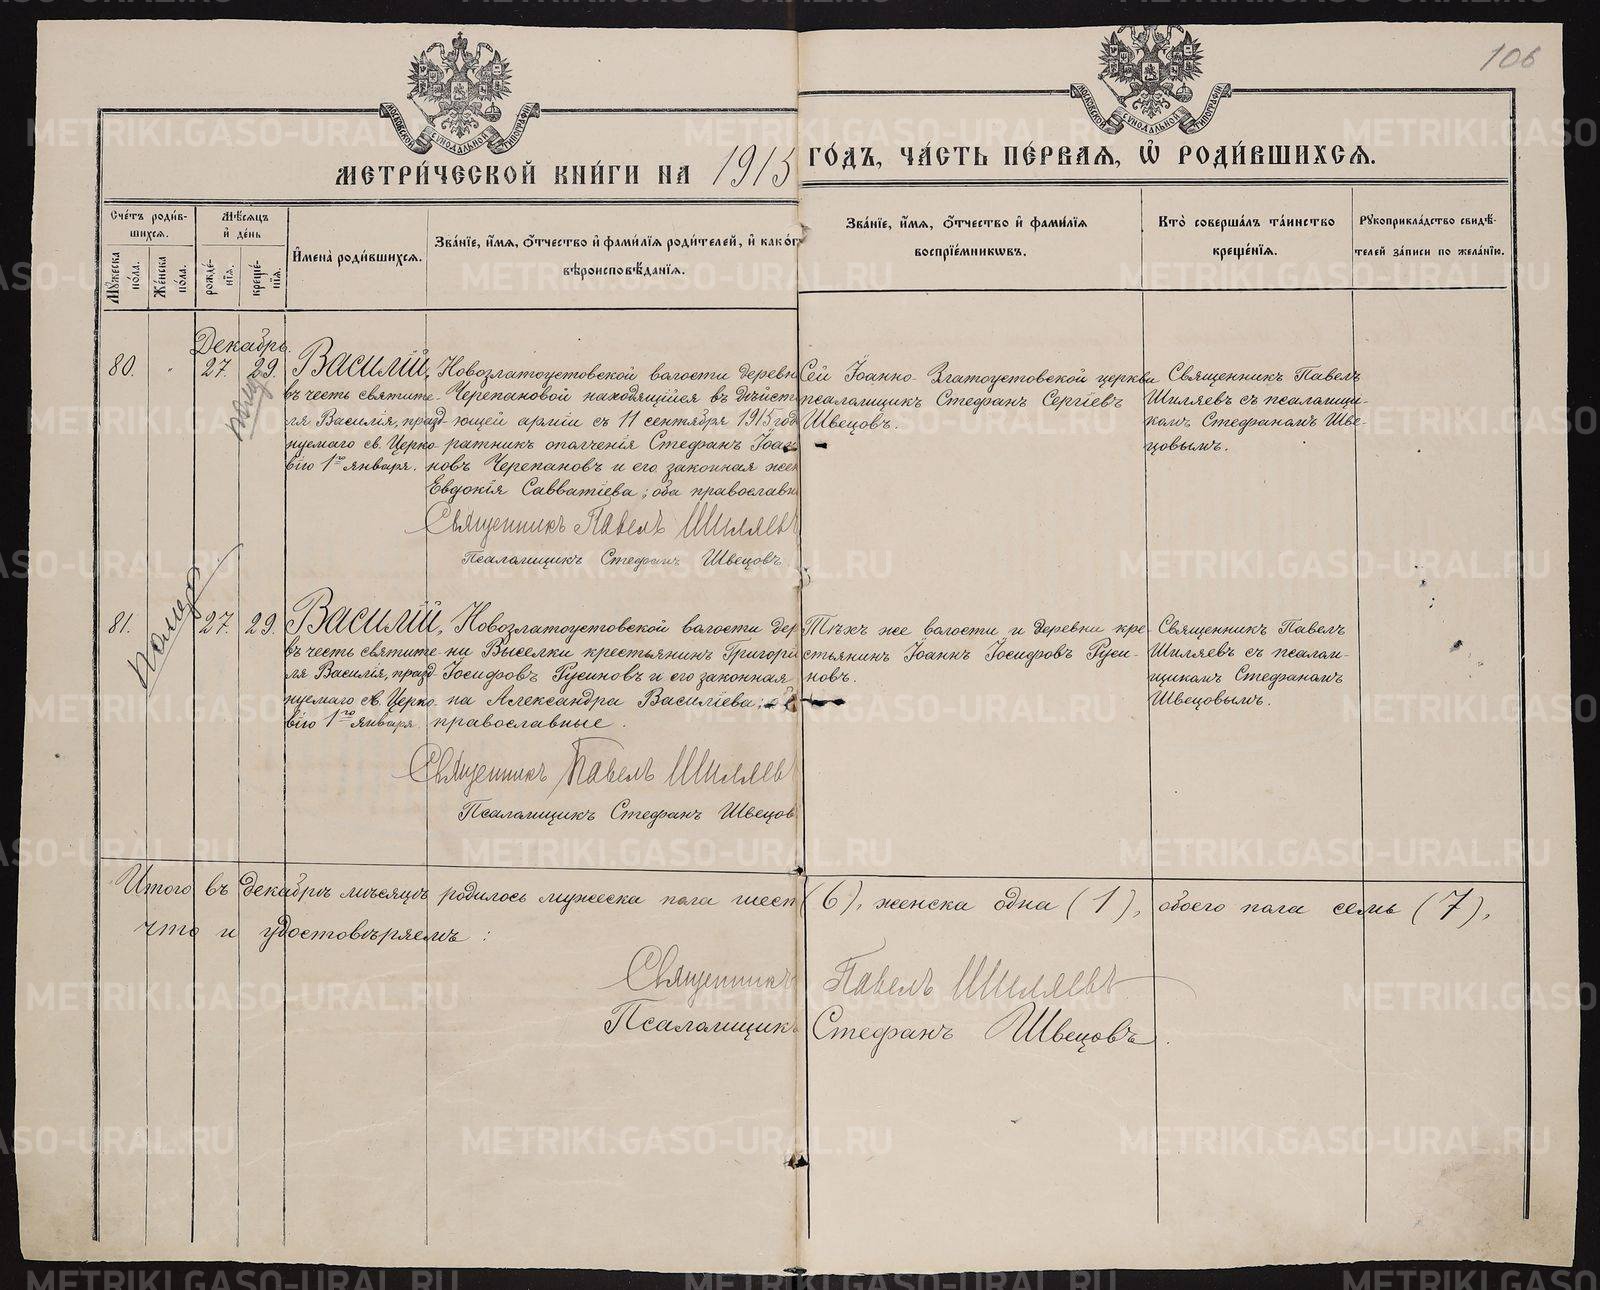 106
МОСКОВСКОЙ СѴНОДАЛЬНОЙ ТИПОГРАФІИ
МОСКОВСКОЙ СѴНОДАЛЬНОЙ ТИПОГРАФІИ
МЕТРИ́ЧЕСКОЙ КНИ́ГИ НА 1915 ГО́ДЪ, ЧА́СТЬ ПЕ́РВАѦ, Ѡ҆ РОДИ́ВШИХСѦ.
Сче́тъ роди́в-
шихсѧ.
Мꙋ́жеска по́ла.
Же́нска по́ла.
Мѣ́сѧцъ
и҆ де́нь
рожде́-
нїѧ.
креще́-
нїѧ.
И҆мена̀ роди́вшихсѧ.
Зва́нїе, и҆́мѧ, ѻ҆́тчество и҆ фами́лїѧ роди́телей, и҆ како́г
вѣроисповѣ́данїѧ.
Зва́нїе, и҆́мѧ, ѻ҆́тчество и҆ фами́лїѧ
воспрїе́мникѡвъ.
Кто̀ соверша́лъ та́инство
креще́нїѧ.
Рꙋкоприкла́дство свидѣ́-
телей за́писи по жела́нїю.
Декабрь.
80.
"
27.
29.
помер
Василій,
въ честь святите-
ля Василія, празд-
нуемаго св. Церко-
вію 1го января.
Новозлатоустовской волости деревн
Черепановой находящійся въ дѣйст
ющей арміи съ 11 сентября 1915 год
ратникъ ополченія Стефанъ Іоан
новъ Черепановъ и его законная жен
Евдокія Савватіева; оба православн
Священникъ Павелъ Шиляевъ
Псаломщикъ Стефанъ Швецовъ
Сей Іоанно-Златоустовской церкви
псаломщикъ Стефанъ Сергіевъ
Швецовъ.
Священникъ Павелъ
Шиляевъ съ псаломщи-
комъ Стефаномъ Шве-
цовымъ.
81.
помер
27.
29.
Василій,
въ честь святите-
ля Василія, празд-
нуемаго св. Церко-
вію 1го января.
Новозлатоустовской волости дер
ни Выселки крестьянинъ Григорі
Іосифовъ Русиновъ и его законная
на Александра Василіева;
православные.
Священникъ Павелъ Шиляев
Псаломщикъ Стефанъ Швецов
Тѣхъ же волости и деревни кре-
стьянинъ Іоаннъ Іосифовъ Руси-
новъ.
Священникъ Павелъ
Шиляевъ съ псалом-
щикомъ Стефаномъ
Швецовымъ.
Итого въ декабрѣ мѣсяцѣ родилось мужеска пола шест (6), женска одна (1), обоего пола семь (7),
что и удостовѣряемъ:
Священникъ Павелъ Шиляевъ
Псаломщикъ Стефанъ Швецовъ.
METRIKI.GASO-URAL.RU